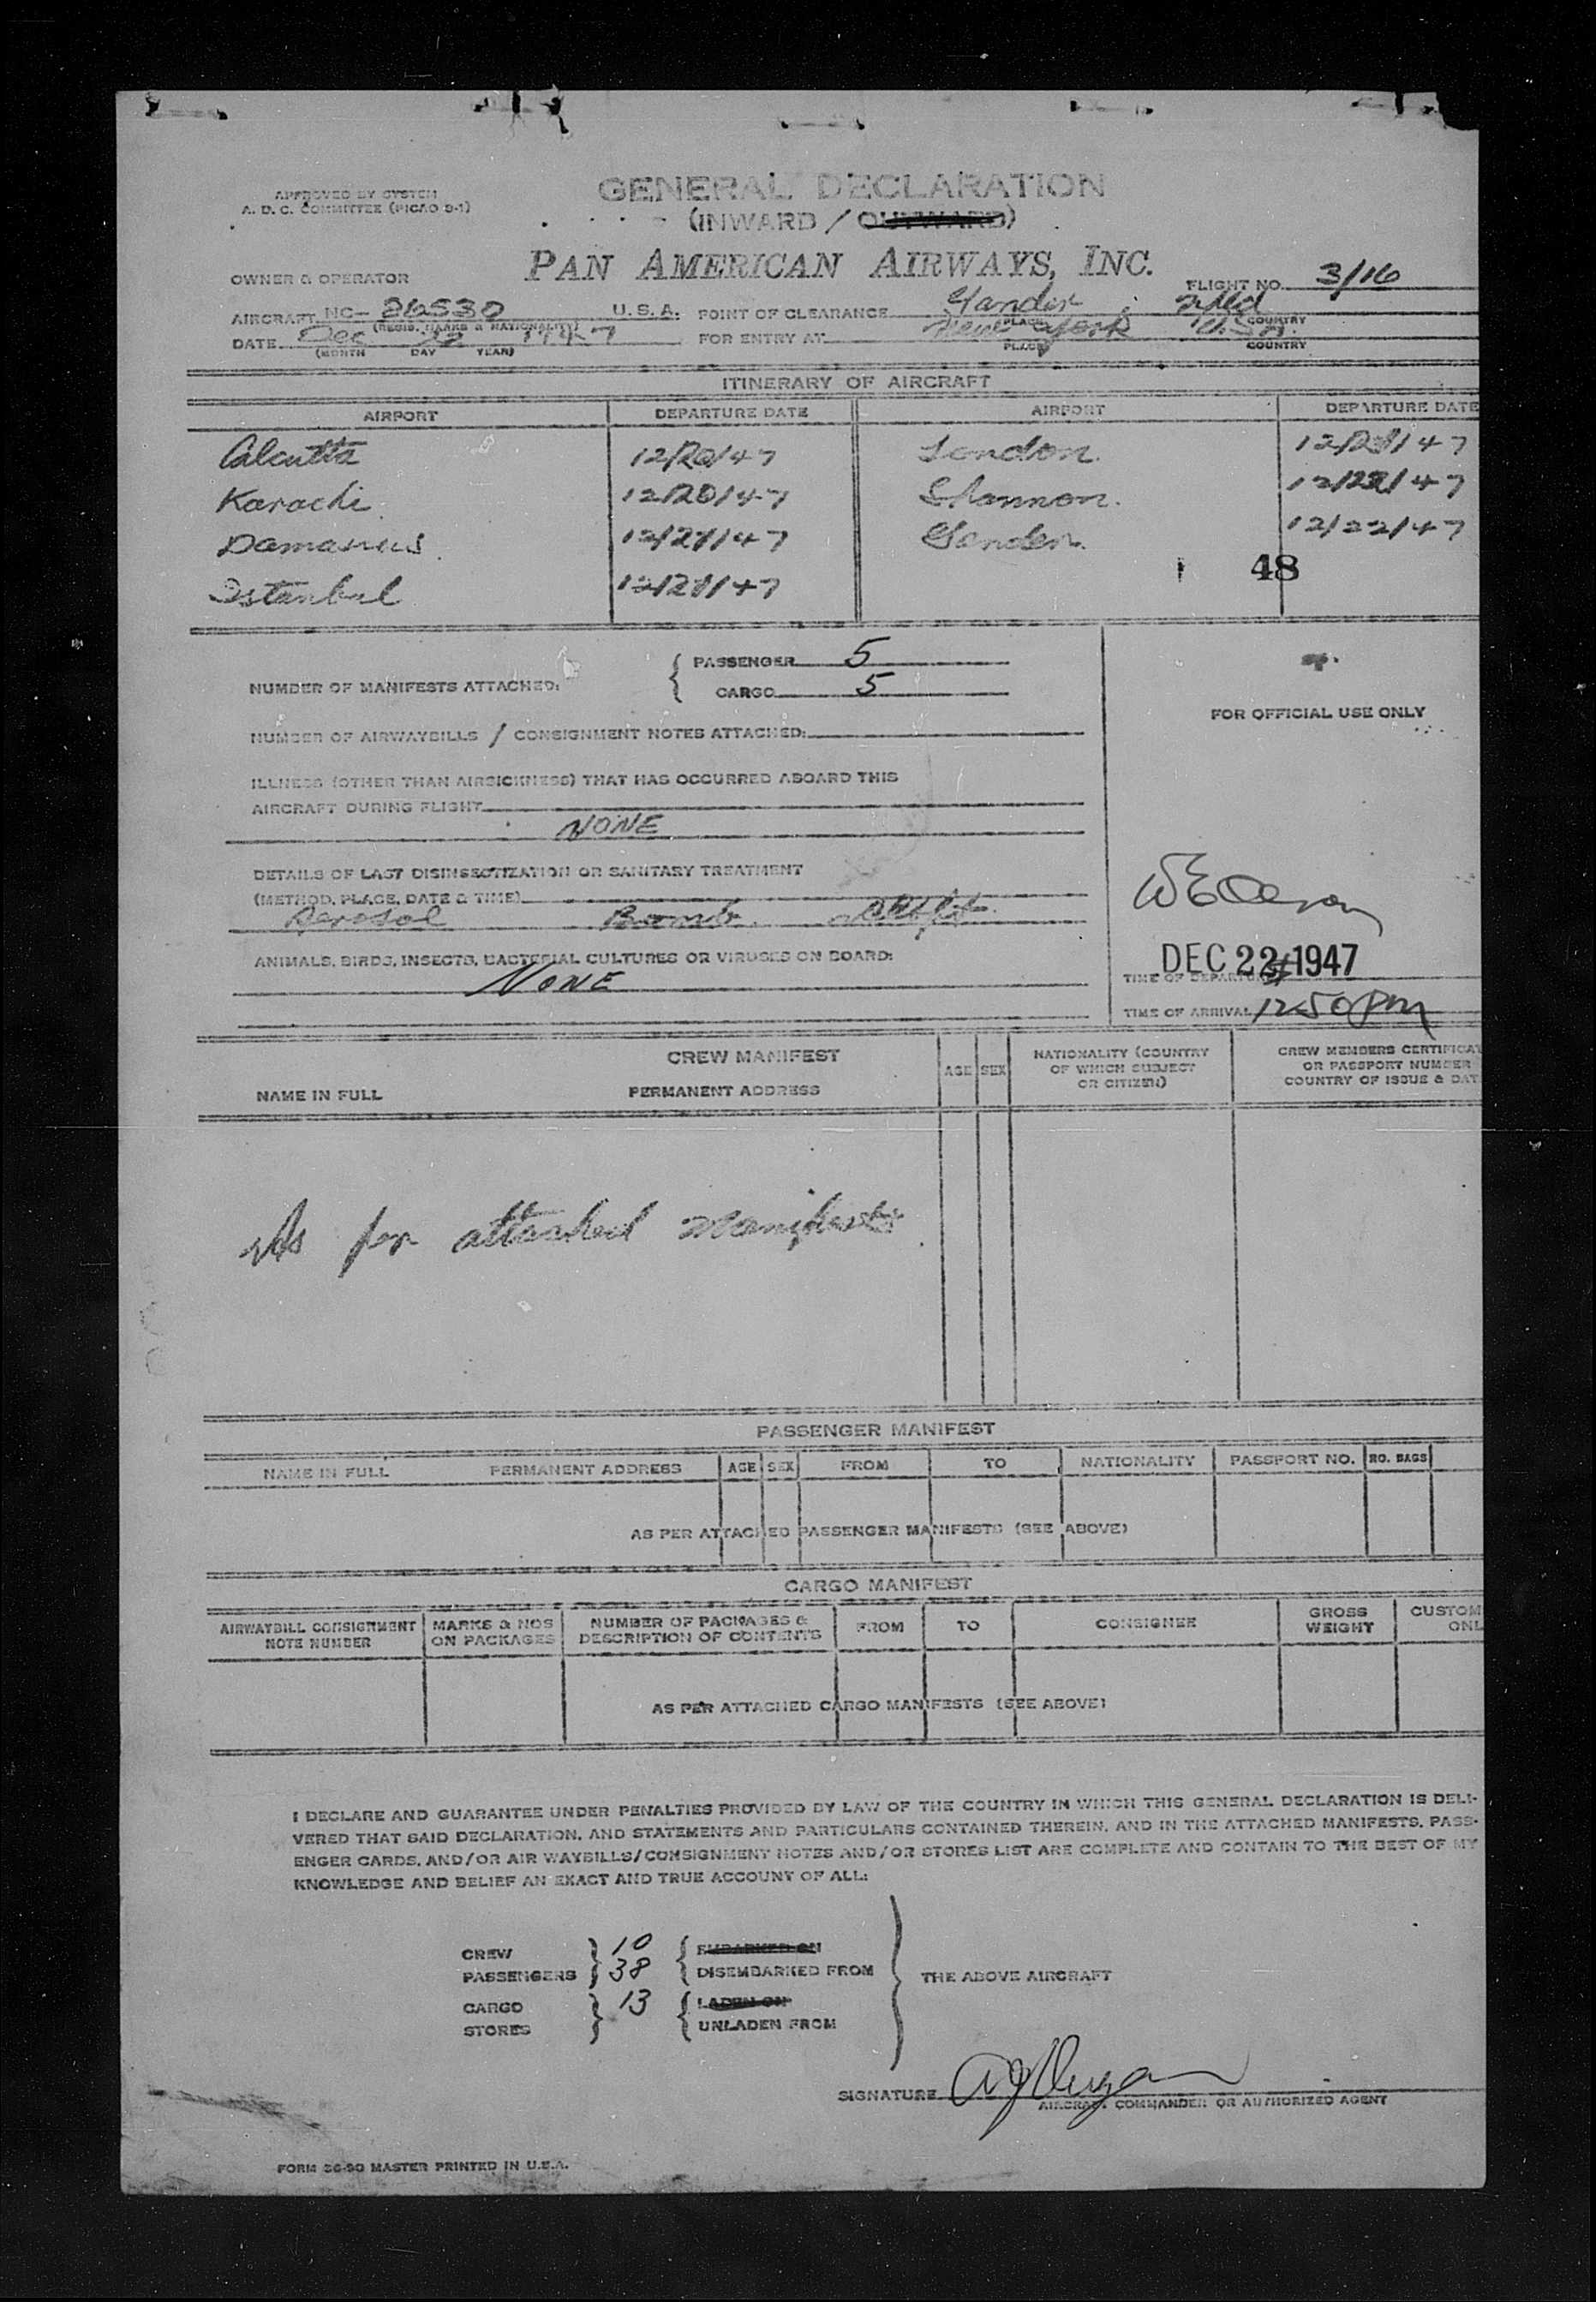 APPROVED BY SYSTEM
A. D. C. COMMITTEE (PICAO 9-1)
GENERAL DECLARATION
(INWARD / OUTWARD)
PAN AMERICAN AIRWAYS, INC.
OWNER & OPERATOR
FLIGHT NO. 3/16
AIRCRAFT NC- U.S.A. POINT OF CLEARANCE Gander Nfld
(REGIS. MARKS & NATIONALITY) PLACE COUNTRY
DATE Dec 22 1947 FOR ENTRY AT New York U.S.A.
(MONTH DAY YEAR) PLACE COUNTRY
ITINERARY OF AIRCRAFT
AIRPORT DEPARTURE DATE AIRPORT DEPARTURE DATE
Calcutta 12/20/47 London 12/21/47
Karachi 12/20/47 Shannon 12/22/47
Damascus 12/21/47 Gander 12/22/47
Istanbul 12/21/47
48
NUMBER OF MANIFESTS ATTACHED: { PASSENGER 5
CARGO 5
FOR OFFICIAL USE ONLY
NUMBER OF AIRWAYBILLS / CONSIGNMENT NOTES ATTACHED:
ILLNESS (OTHER THAN AIRSICKNESS) THAT HAS OCCURRED ABOARD THIS
AIRCRAFT DURING FLIGHT
NONE
DETAILS OF LAST DISINSECTIZATION OR SANITARY TREATMENT
(METHOD, PLACE, DATE & TIME)
Aerosol Bomb
ANIMALS, BIRDS, INSECTS, BACTERIAL CULTURES OR VIRUSES ON BOARD:
NONE
DEC 22 1947
TIME OF DEPARTURE
TIME OF ARRIVAL 12:50 PM
CREW MANIFEST
NAME IN FULL PERMANENT ADDRESS AGE SEX NATIONALITY (COUNTRY OF WHICH SUBJECT OR CITIZEN) CREW MEMBERS CERTIFICAT OR PASSPORT NUMBER COUNTRY OF ISSUE & DAT
As per attached manifests
PASSENGER MANIFEST
NAME IN FULL PERMANENT ADDRESS AGE SEX FROM TO NATIONALITY PASSPORT NO. NO. BAGS
AS PER ATTACHED PASSENGER MANIFESTS (SEE ABOVE)
CARGO MANIFEST
AIRWAYBILL CONSIGNMENT NOTE NUMBER MARKS & NOS ON PACKAGES NUMBER OF PACKAGES & DESCRIPTION OF CONTENTS FROM TO CONSIGNEE GROSS WEIGHT CUSTOM ONL
AS PER ATTACHED CARGO MANIFESTS (SEE ABOVE)
I DECLARE AND GUARANTEE UNDER PENALTIES PROVIDED BY LAW OF THE COUNTRY IN WHICH THIS GENERAL DECLARATION IS DELI-
VERED THAT SAID DECLARATION, AND STATEMENTS AND PARTICULARS CONTAINED THEREIN, AND IN THE ATTACHED MANIFESTS, PASS-
ENGER CARDS, AND/OR AIR WAYBILLS/CONSIGNMENT NOTES AND/OR STORES LIST ARE COMPLETE AND CONTAIN TO THE BEST OF MY
KNOWLEDGE AND BELIEF AN EXACT AND TRUE ACCOUNT OF ALL:
CREW } 10 { EMBARKED ON
PASSENGERS } 38 { DISEMBARKED FROM } THE ABOVE AIRCRAFT
CARGO } 13 { LADEN ON
STORES } { UNLADEN FROM
SIGNATURE
AIRCRAFT COMMANDER OR AUTHORIZED AGENT
FORM 36-90 MASTER PRINTED IN U.S.A.